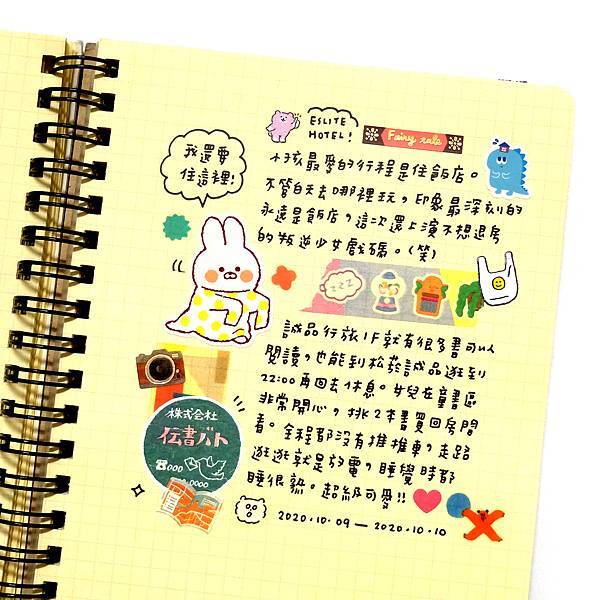 ESLITE
HOTEL!
Fairy tale
我還要
住這裡!
小孩最愛的行程是住飯店。
不管白天去哪裡玩,印象最深刻的
永遠是飯店,這次還上演不想退房
的叛逆少女戲碼。(笑)
zzz
誠品行旅1F就有很多書可以
閱讀,也能到松菸誠品逛到
22:00再回去休息。女兒在童書區
非常開心,挑2本書買回房間
看。全程都沒有推推車,走路
逛逛就是放電,睡覺時都
睡很熟。超級可愛!!
株式会社
伝書バト
☎000
0.0000
2020.10.09—2020.10.10